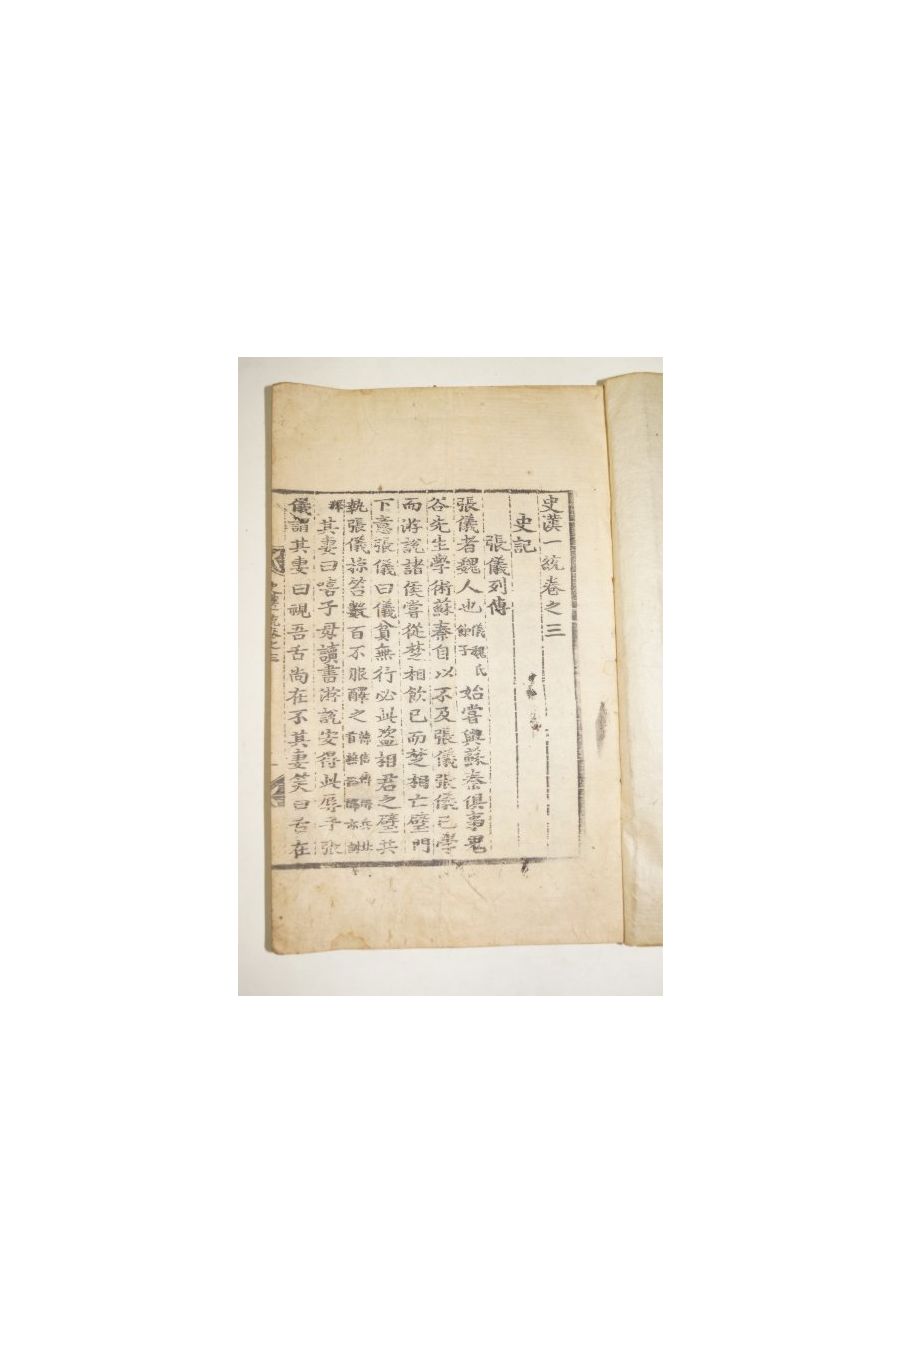 史漢一統卷之三
史記
張儀列傳
張儀者魏人也儀魏氏餘子始嘗與蘇秦俱事鬼
谷先生學術蘇秦自以不及張儀張儀已學
而游說諸侯嘗從楚相飲已而楚相亡璧門
下意張儀曰儀貧無行必此盜相君之璧共
執張儀掠笞數百不服醳之
釋其妻曰嘻子毋讀書游說安得此辱乎張
儀謂其妻曰視吾舌尚在不其妻笑曰舌在